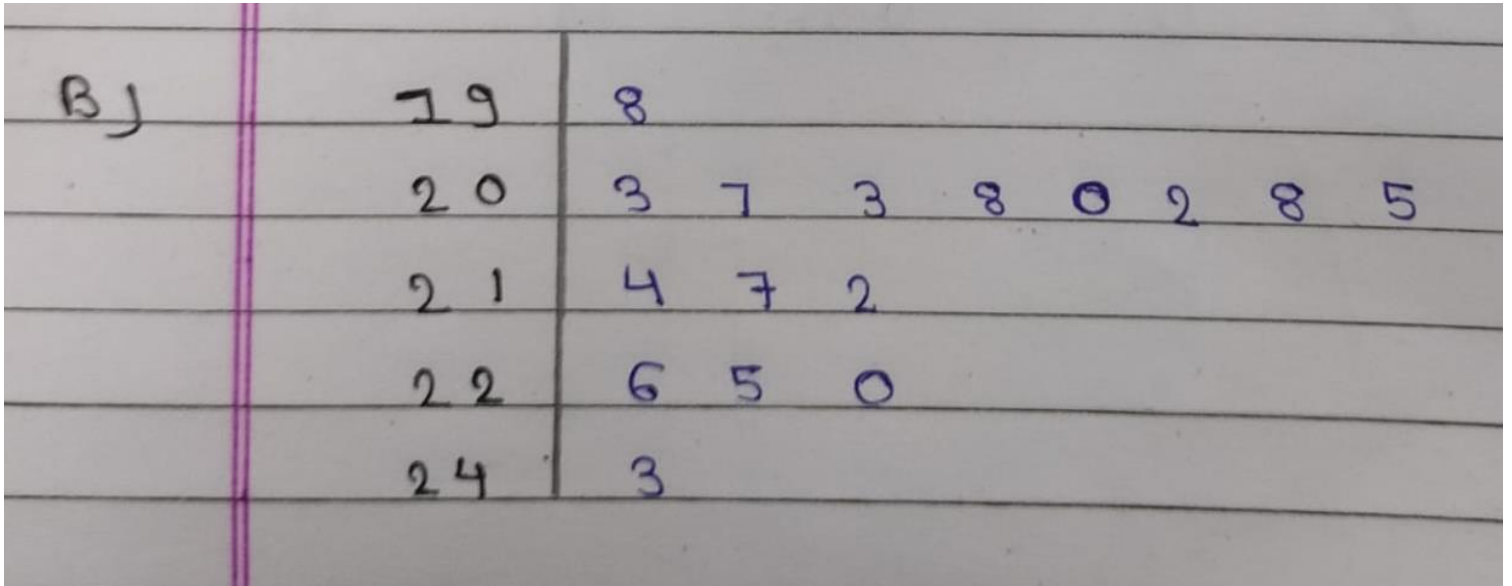 B) 19 | 8
20 | 3 1 3 8 0 2 8 5
21 | 4 7 2
22 | 6 5 0
24 | 3